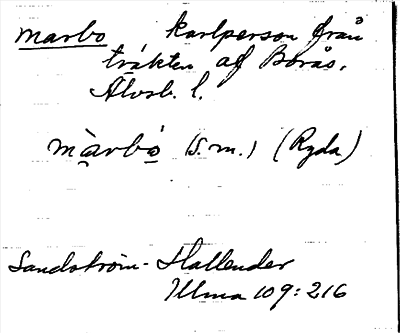 marbo karlperson från
trakten af Borås.
Älvsb. l.
màrbò (s. m.) (Ryda)
Sandström-Hallender
Ulma 109:216